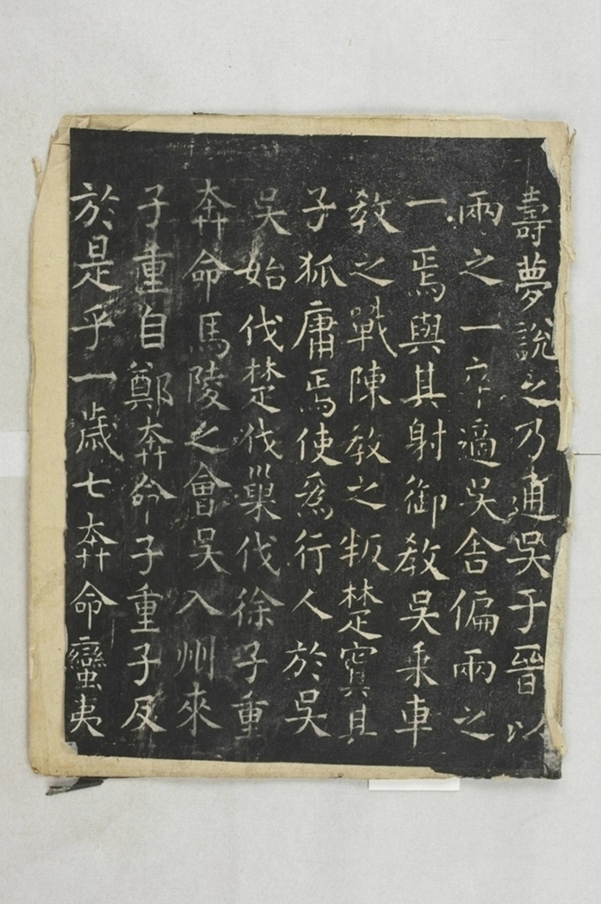 壽夢說之乃通吳于晉以
兩之一卒適吳舍偏兩之
一焉與其射御教吳乘車
教之戰陳教之叛楚寘其
子狐庸焉使爲行人於吳
吳始伐楚伐巢伐徐子重
奔命馬陵之會吳入州來
子重自鄭奔命子重子反
於是乎一歲七奔命蠻夷